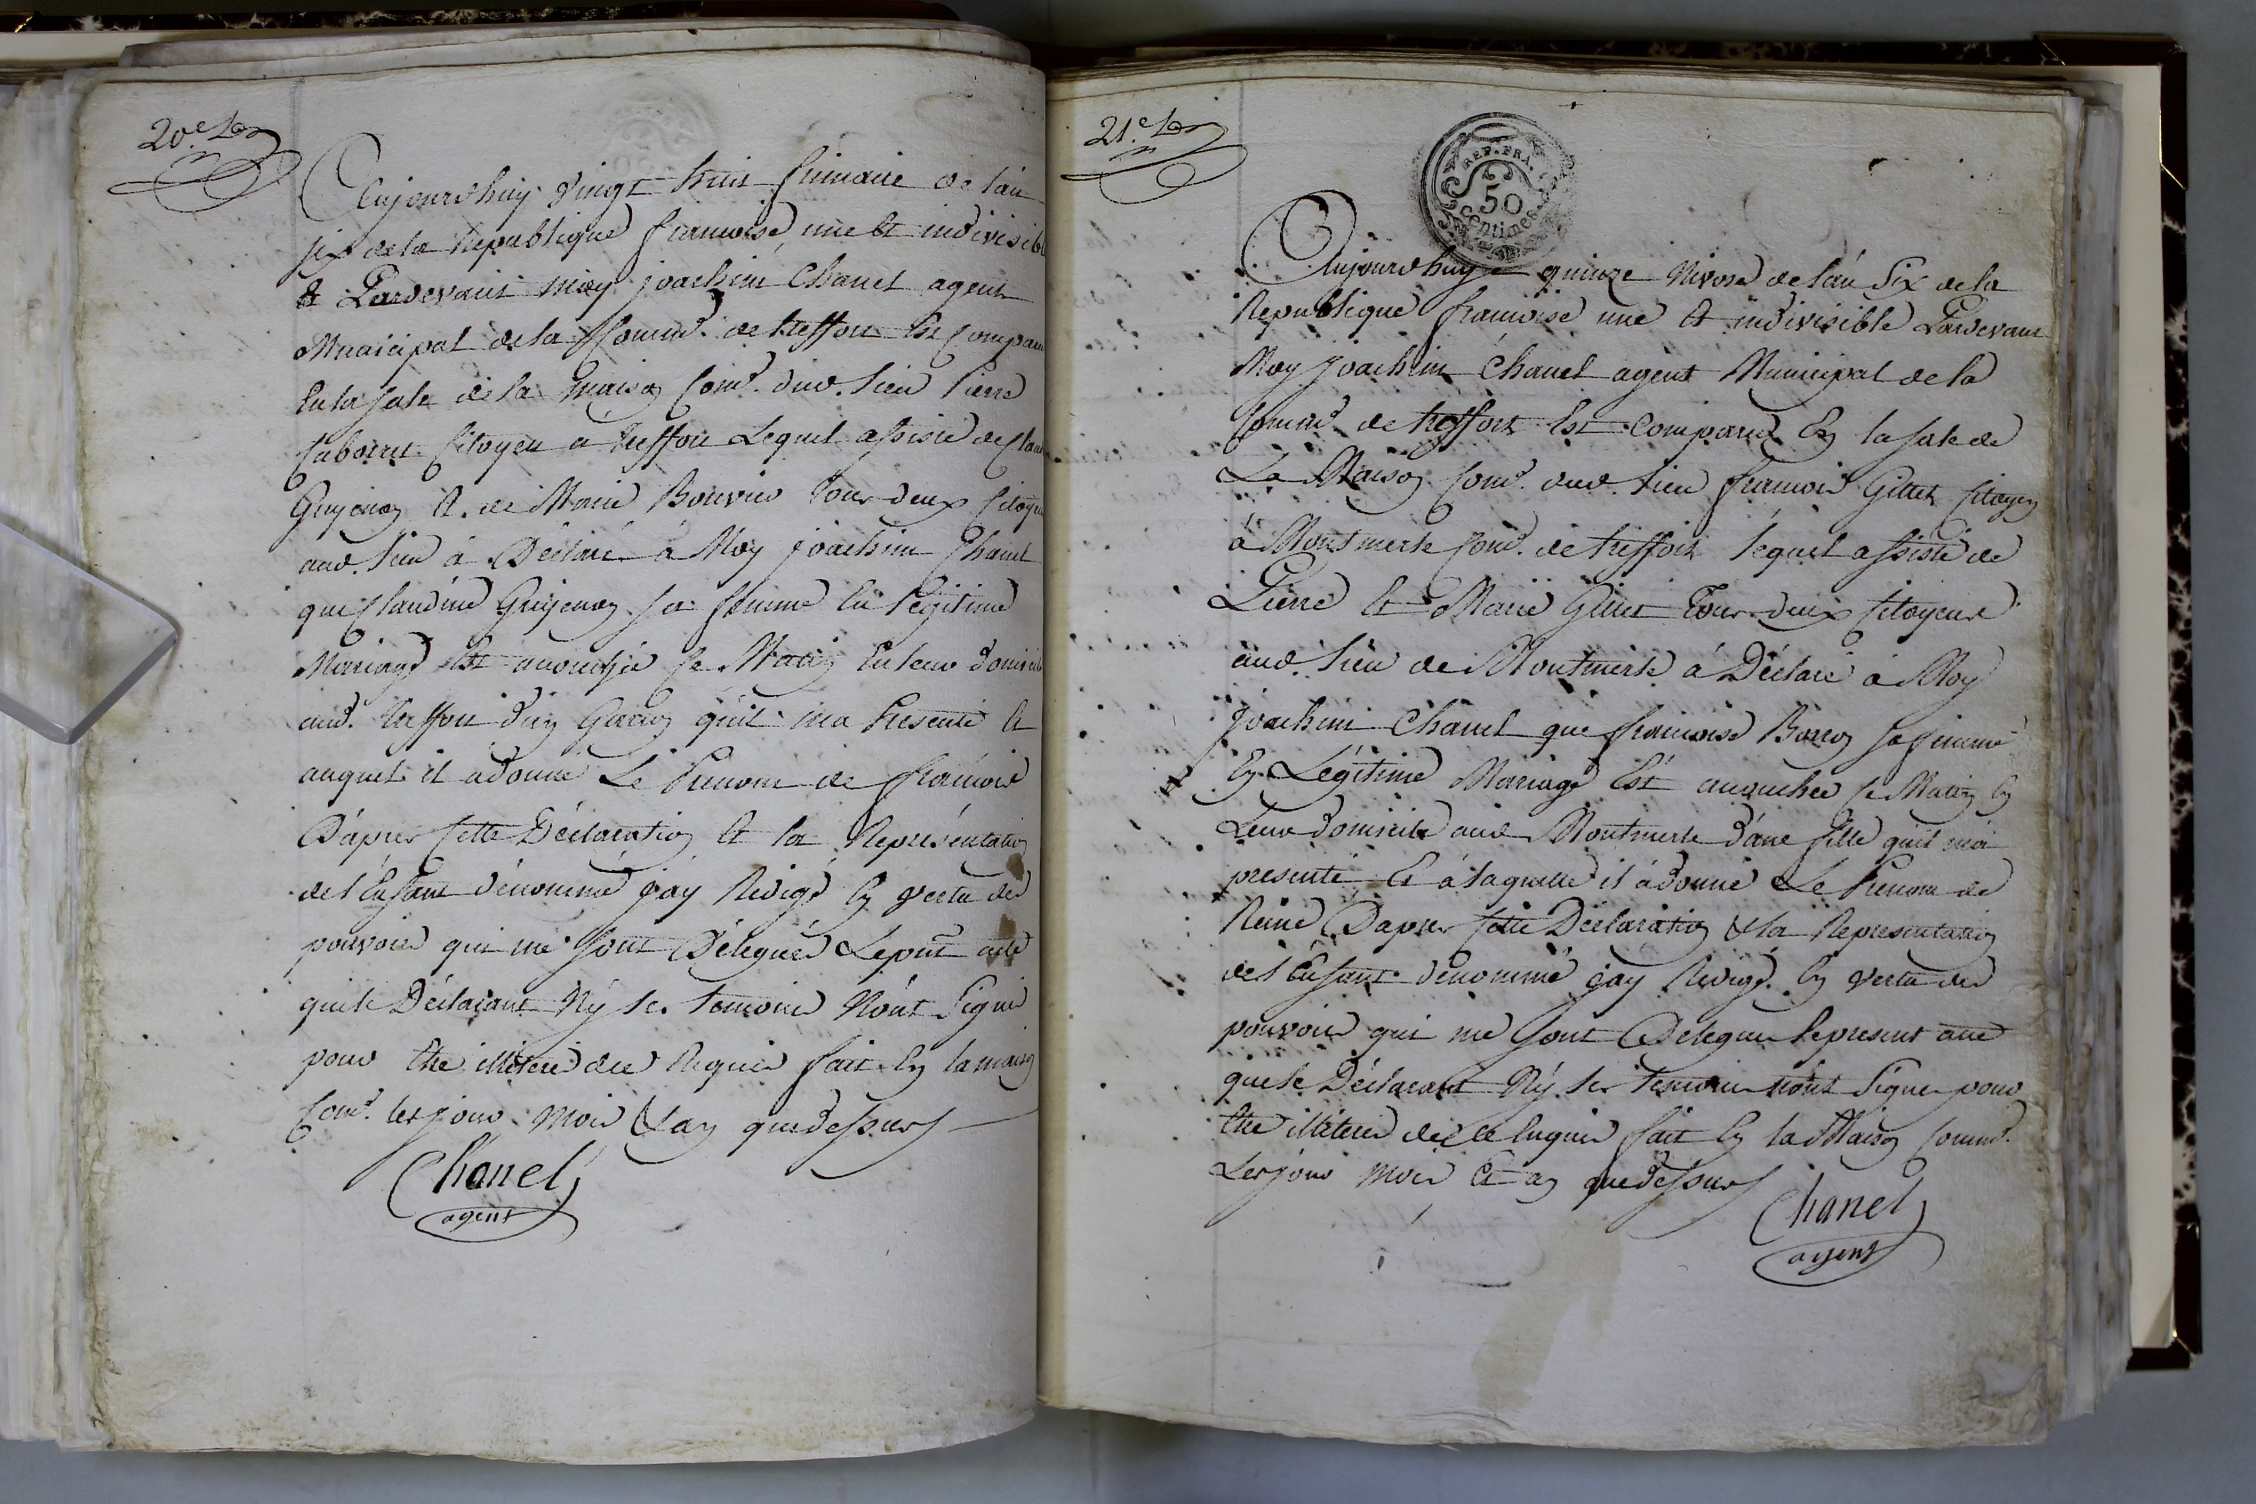 20.e
Aujourdhuy vingt huit frimaire de lan
six de la Republique francoise, une et indivisible
et Pardevant moy joachim Chanel agent
Municipal de la Comm.e de treffort Est Comparu
En la sale de la maison Com.e dud. lieu Pierre
Citoyen a treffort Lequel assisté de
Guyenon et de Marie Bouvier tous deux Citoyens
aud. lieu à Déclaré à Moy joachim Chanel
que Claudine Guyenon sa femme En légitime
Mariage Est accouchée ce Matin En leur domicile
aud. treffort d'un Garcon qu'il ma Presenté et
auquel il à donné Le Prenom de francois
D'apres Cette Déclaration et la Représentation
de l'Enfant dénommé jay Redigé En vertu des
pouvoirs qui me sont Délegués Le pnt acte
que le Déclarant Ny les temoins N'ont Signé
pour Etre illiteré de ce Requis fait En la maison
Com.e les jour Mois & an que dessus
Chanel
agent
21.e
REP. FRA.
50
centimes
Aujourdhuy quinze Nivose de lan Six de la
Republique francoise une et indivisible Pardevant
Moy joachim Chanel agent Municipal de la
Comm.e de treffort Est Comparu En la sale de
La Maison Com.e dud. lieu francois Gillet Citoyen
à Montmerle Com.e de treffort lequel assisté de
Pierre et Marie Gillet tous deux Citoyens
aud. lieu de Montmerle à Déclaré à Moy
joachim Chanel que francoise sa femme
En Légitime Mariage Est accouchée ce Matin En
Leur domicile aud. Montmerle d'une fille quil m'a
presenté et à laquelle il à donné Le Prenom de
Reine D'apres Cette Déclaration & la Representation
de l'Enfant dénommé jay Redigé En vertu des
pouvoirs qui me sont Delegués le present acte
que le Déclarant Ny les temoins n'ont Signé pour
Etre illiterés de ce Enquis fait En la Maison Comm.e
Les jour Mois et an que dessus
Chanel
agent